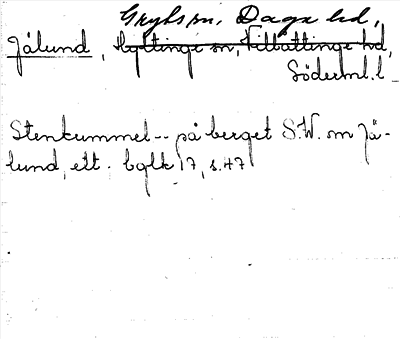 Gryts sn, Daga hd,
Jälund, Hyltinge sn, Villåttinge hd,
Söderml. l.
Stenkummel -- på berget S.W. om Jä-
lund, ett. bglk 17, s. 47